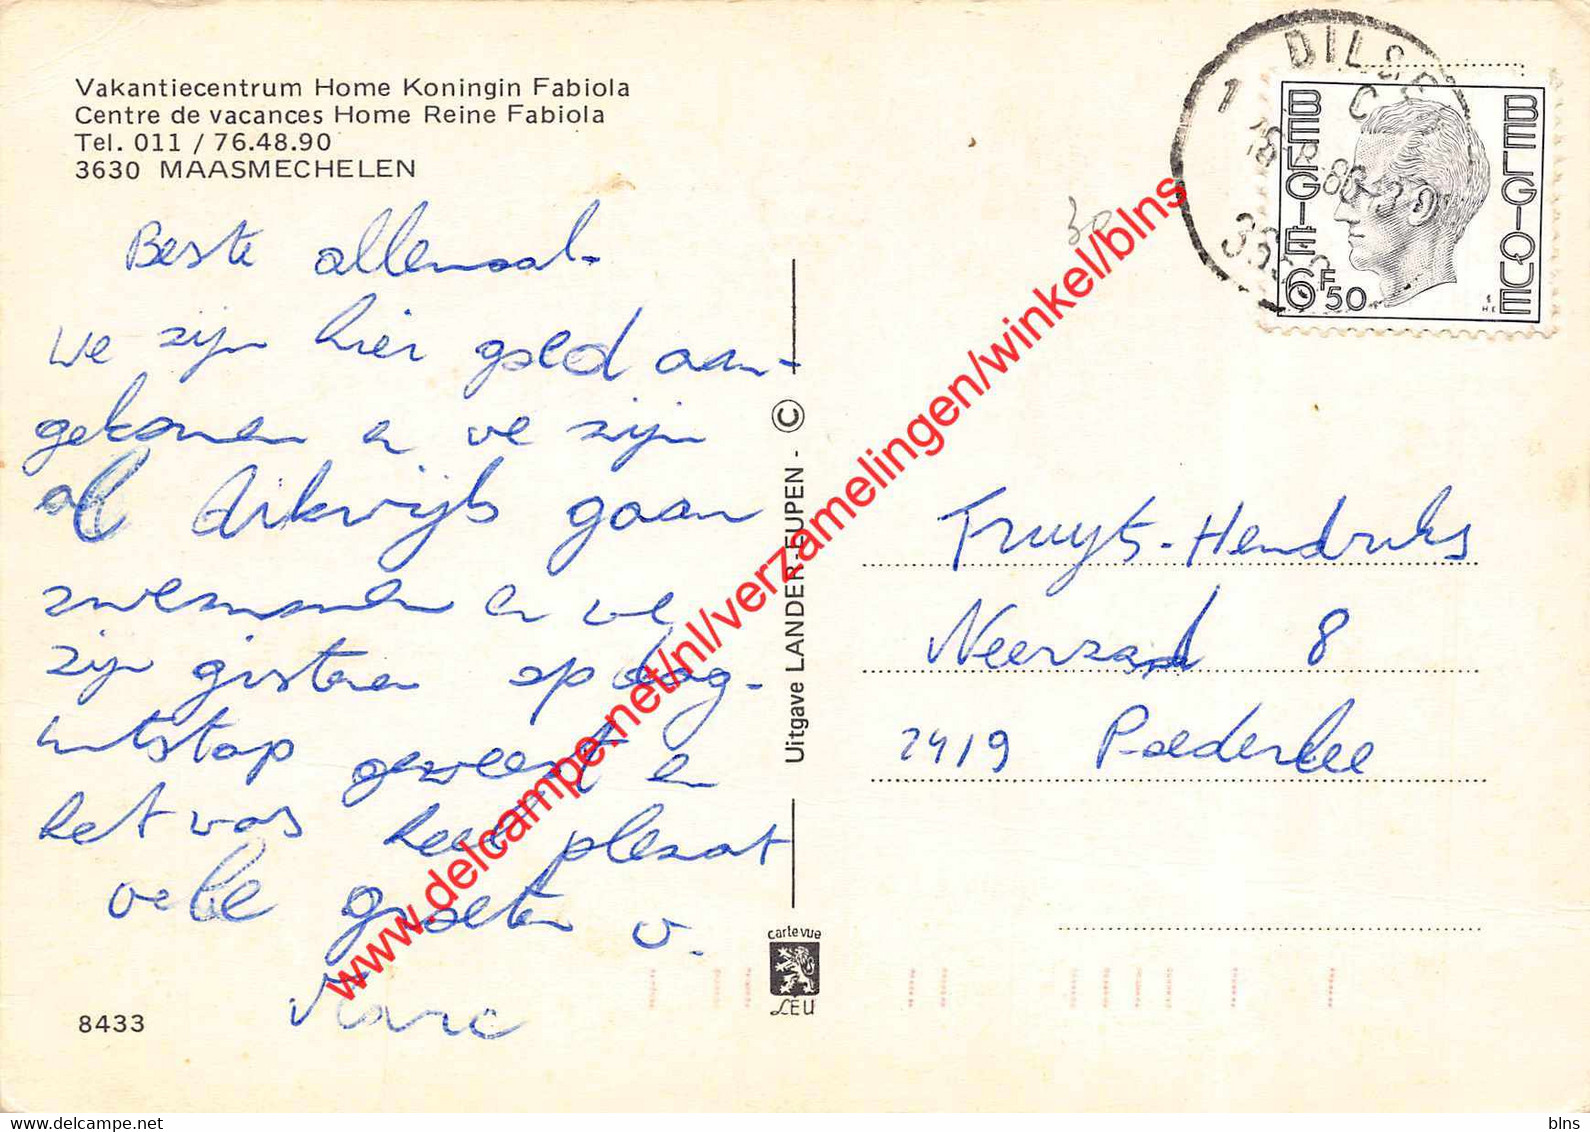 Vakantiecentrum Home Koningin Fabiola
Centre de vacances Home Reine Fabiola
Tel. 011 / 76.48.90
3630 MAASMECHELEN
Beste allemaal.
We zijn hier goed aan-
gekomen en we zijn
al dikwijls gaan
zwemmen en we
zijn gisteren op dag-
uitstap geweest en
het was heel plezant
vele groeten v.
Marc
8433
Uitgave LANDER-EUPEN - ©
carte vue
LEU
DILSE
BELGIE
BELGIQUE
6F50
30
Fruyts-Hendriks
Neerzand 8
2419 Poederlee
www.delcampe.net/nl/verzamelingen/winkel/blns
blns